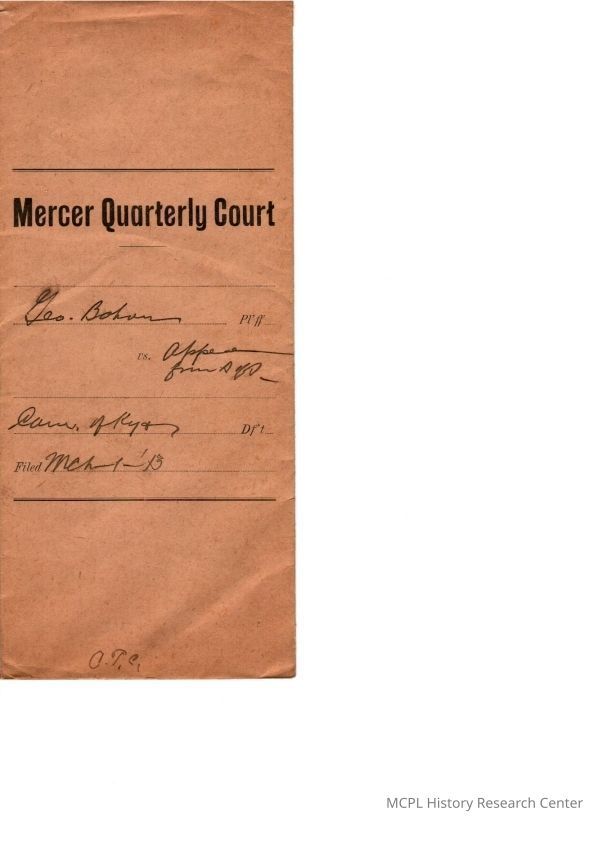 Mercer Quarterly Court
Geo. Bohon Pl'ff
vs. Appeal
from
Com. of Ky Df't
Filed Mch 1- '13
C.T.C.
MCPL History Research Center